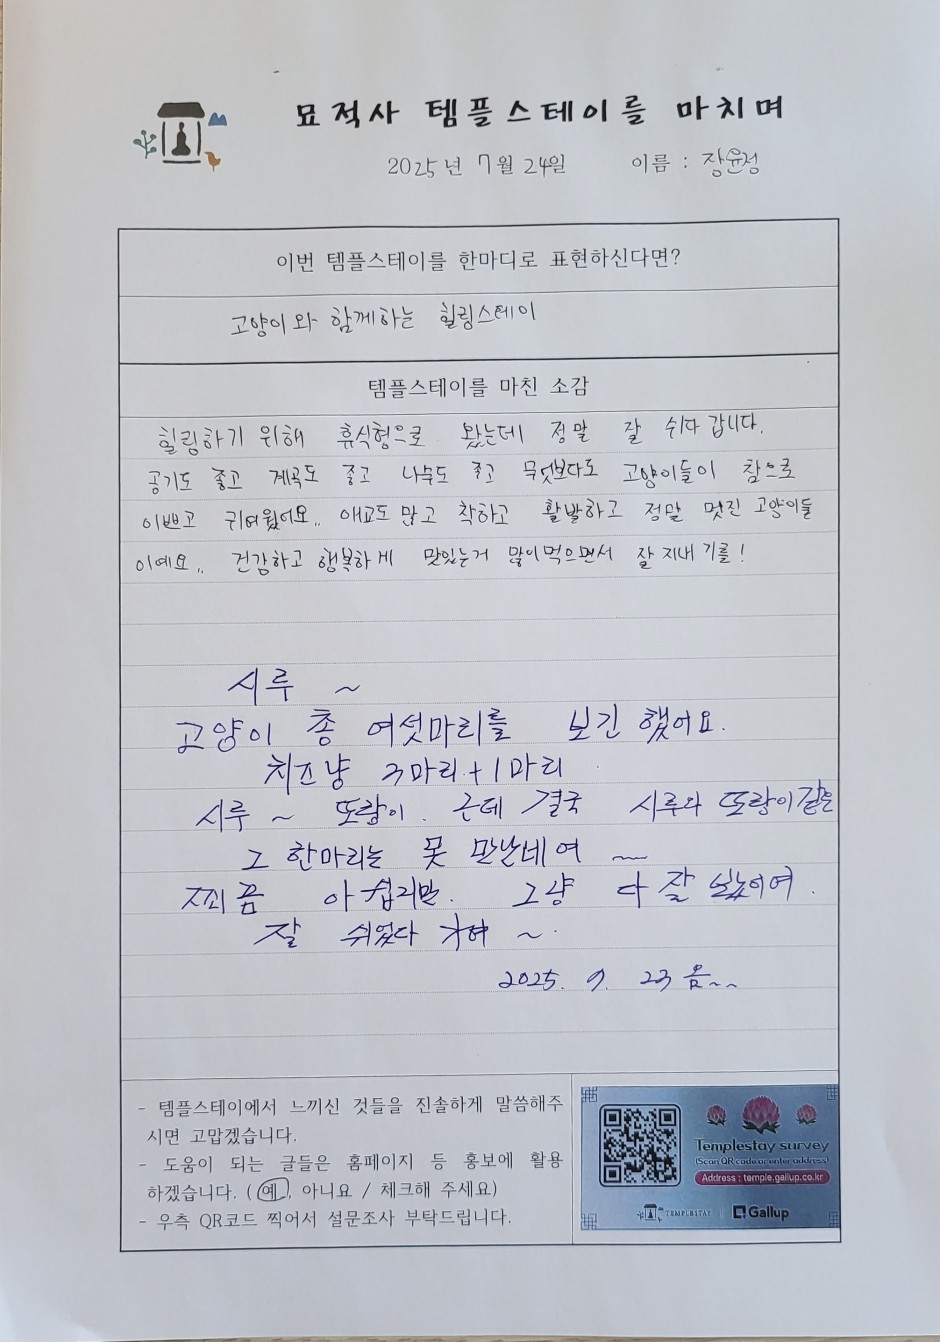 묘적사 템플스테이를 마치며
2025년 7월 24일 이름 : 장윤정
이번 템플스테이를 한마디로 표현하신다면?
고양이와 함께하는 힐링스테이
템플스테이를 마친 소감
힐링하기 위해 휴식형으로 왔는데 정말 잘 쉬다 갑니다.
공기도 좋고 계곡도 좋고 나무도 좋고 무엇보다도 고양이들이 참으로
이쁘고 귀여웠어요.. 애교도 많고 착하고 활발하고 정말 멋진 고양이들
이예요.. 건강하고 행복하게 맛있는거 많이 먹으면서 잘 지내기를!
시루 ~
고양이 총 여섯마리를 보긴 했어요.
치즈냥 3마리 + 1마리
시루 ~ 또랑이. 근데 결국 시루과 또랑이같은
그 한마리는 못 만난네여 ~
찌끔 아쉽지만. 그냥 다 잘 있어여.
잘 쉬었다 가여 ~.
2025. 9. 23 ~~
- 템플스테이에서 느끼신 것들을 진솔하게 말씀해주
시면 고맙겠습니다.
- 도움이 되는 글들은 홈페이지 등 홍보에 활용
하겠습니다. (예, 아니요 / 체크해 주세요)
- 우측 QR코드 찍어서 설문조사 부탁드립니다.
Templestay survey
(Scan QR code or enter address)
Address : temple.gallup.co.kr
TEMPLESTAY Gallup